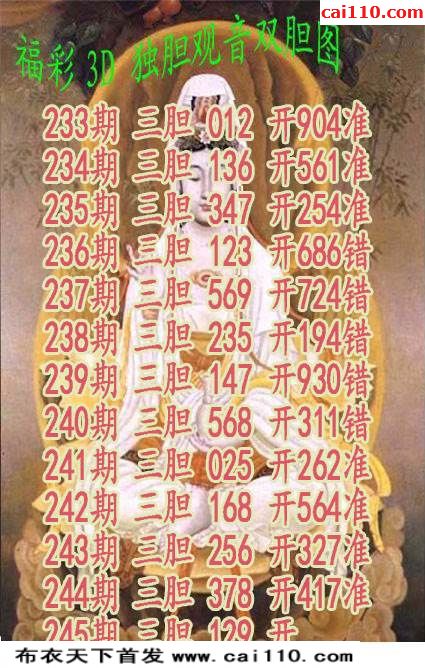 我爱彩票网
cai110.com
福彩 3D 独胆观音双胆图
233期 三胆 012 开904准
234期 三胆 136 开561准
235期 三胆 347 开254准
236期 三胆 123 开686错
237期 三胆 569 开724错
238期 三胆 235 开194错
239期 三胆 147 开930错
240期 三胆 568 开311错
241期 三胆 025 开262准
242期 三胆 168 开564准
243期 三胆 256 开327准
244期 三胆 378 开417准
245期 三胆 129 开
布衣天下首发 www.cai110.com